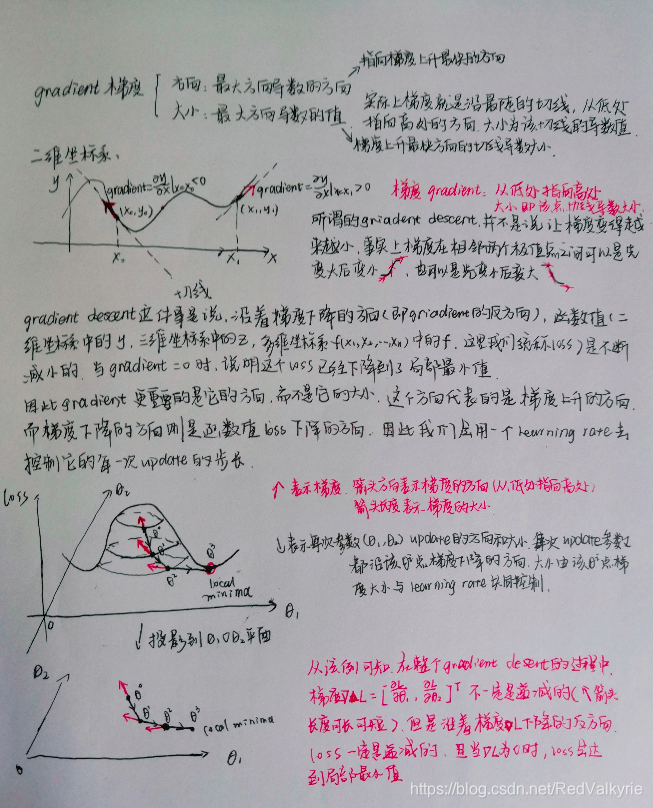 指向梯度上升最快的方向
gradient 梯度
方向：最大方向导数的方向
大小：最大方向导数的值
实际上梯度就是沿最陡的切线，从低处
指向高处的方向，大小为该切线的导数值
梯度上升最快方向的切线导数大小.
二维坐标系、
y
gradient=∂y/∂x|x=x₀<0
(x₀,y₀)
gradient=∂y/∂x|x=x₁>0
(x₁,y₁)
x₀
x₁
x
切线
梯度 gradient：从低处指向高处
大小即该点切线导数大小.
所谓的griadent descent，并不是说让梯度变得越
来越小，事实上梯度在相邻两个极值点之间可以是先
变大后变小，也可以是先变小后变大
gradient descent这件事是说，沿着梯度下降的方向(即griadient的反方向)，函数值(二
维坐标中的y，三维坐标系中的z，多维坐标系f(x₁,x₂,…xₙ)中的f，这里我们统称loss)是不断
减小的，当gradient=0时，说明这个loss已经下降到了局部最小值.
因此gradient更重要的是它的方向，而不是它的大小，这个方向代表的是梯度上升的方向
而梯度下降的方向则是函数值loss下降的方向，因此我们会用一个learning rate去
控制它的每一次update的步长.
loss
θ₂
θ⁰
θ¹
θ²
θ³
local
minima
0
θ₁
↑表示梯度，箭头方向表示梯度的方向(从低处指向高处)
箭头长度表示梯度的大小
↓表示每次参数(θ₁,θ₂) update的方向和大小，每次update参数
都沿该点梯度下降的方向，大小由该点梯
度大小与learning rate共同控制.
↓投影到θ₁Oθ₂平面
θ₂
θ⁰
θ¹
θ²
θ³
local minima
0
θ₁
从该例可知，在整个gradient desent的过程中
梯度∇L=[∂L/∂θ₁, ∂L/∂θ₂]ᵀ不一定是递减的(↑箭头
长度可长可短)，但是沿着梯度∇L下降的反方向，
loss一定是递减的，且当∇L为0时，loss会达
到局部最小值
https://blog.csdn.net/RedValkyrie